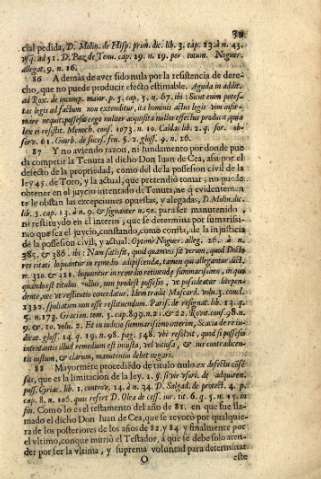 cial pedida, D. Molin. de Hisp. prim. dic. lib. 3. cap. 13. à n. 45.
vsq. ad 51. D. Paz de Tenu. cap. 19. n. 19. per totum. Noguer.
allegat. 9. n. 16.
86 A demás de aver sido nula por la resistencia de dere-
cho, que no puede producir efecto estimable. Aguila in addit.
ad Rox. de incomp. maior. p. 5. cap. 5. n. 67. ibi: Sicut enim potes-
tas legis ad factum non extenditur, ita hominis actus legis vim
mere nequit: possessio ergo nulliter acquisita nullos effectus producit, quia
lex ei resistit. Menoch. cons. 1073. n. 10. Cald. lib. 2. q. for. ob-
serv. 61. Gurb. de success. feu. §. 2. gloss. 9. n. 26.
87 Y no aviendo razon, ni fundamento por donde pue-
da competir la Tenuta al dicho Don Iuan de Cea, assi por el
defecto de la propriedad, como del de la possession civil de la
ley 45. de Toro, y la actual, que pretendiò tomar, no pueda
obtener en el juyzio intentado de Tenuta, no evidentemen-
te le obstan las excepciones opuestas, y alegadas, D. Molin. dic.
lib. 3. cap. 13. à n. 9. & signanter n. 56. para ser manutenido,
ni restituydo en el interim, que se determina por sumarissi-
mo que sea el juycio, constando, como consta, de la in justicia
de la possession civil, y actual. Optimè Noguer. alleg. 26. à n.
385. & 386. ibi: Nam satisfit, quod
n. 310 & 311. loquuntur in remedio retinendae summarissimo, in quo
quando est titulus nullus, non prodest possessio, ve possideatur
dente, nec ut restitutio concedatur. Idem tradit Mascard. vol. 3. concl.
1322. spoliatum non esse restituendum. Paris. de resignat. lib. 14. q.
5. n. 173. Gracian. tom. 5. cap. 899. n. 21. & 22. Rovit. cons. 98. n.
9. & 10. volu. 2. Et in iudicio summarissimo interim, Scacia de re iu-
dicat. gloss. 14. q. 19. n. 98. pag. 548. ubi resolvit, quod si possessio
intentantis illud remedium est iniusta, vel vitiosa, & iur contradicen-
tis iustum, & clarum, manutenio debet negari.
88 Mayormente procediendo de titulo nulo ex defectu causæ
que es la limitacion de la ley. 2. §.
poss. Cyriac. lib. 1. controv. 14. à n. 34. D. Salgad. de protect. 4. p.
cap. 8. n. 106. quos refert D. Olea de cess. iur. tit. 6. q. 5. n. 15. in
fin. Como lo es el testamento del año de 81. en que fue lla-
mado el dicho Don Iuan de Cea, que se revocò por qualquie-
ra de los posteriores de los años de 82. y 84. y finalmente por
el vltimo, con que muriò el Testador, à que se debe solo aten-
der por ser la vltima, y suprema voluntad para determinar
O este